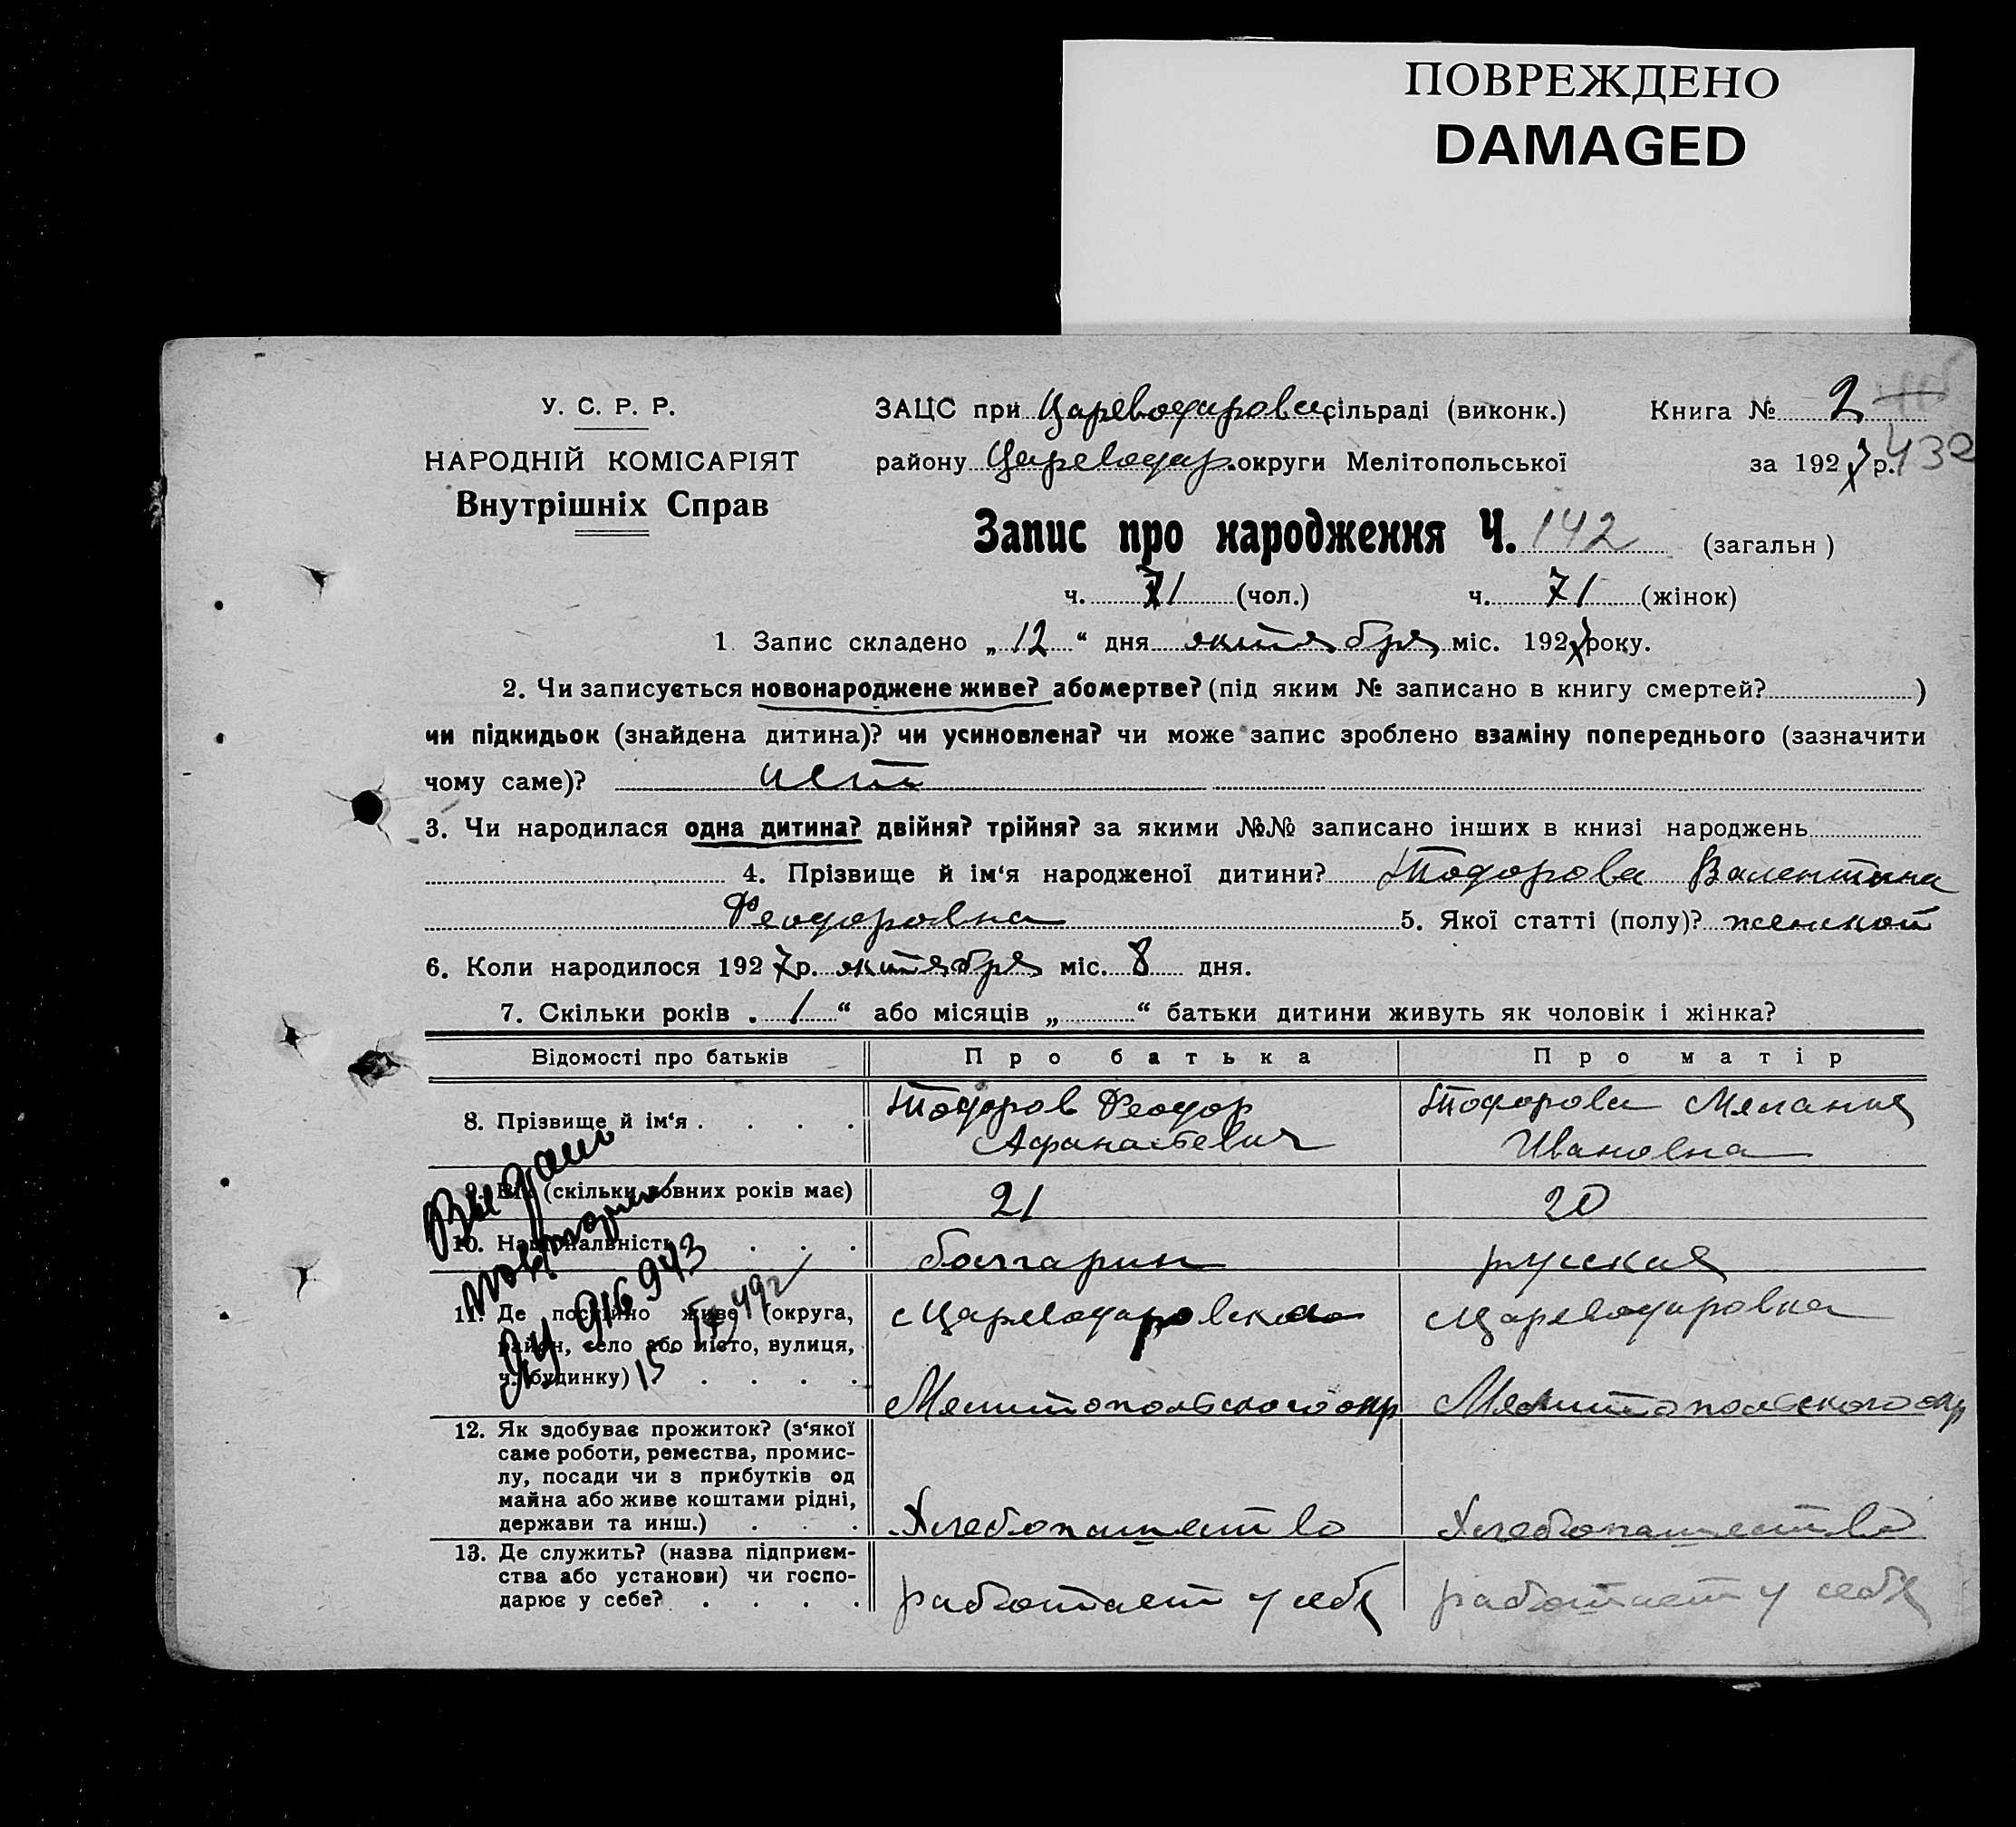 ПОВРЕЖДЕНО
DAMAGED
У. С. Р. Р.
НАРОДНІЙ КОМІСАРІЯТ
Внутрішніх Справ
ЗАЦС при Цареводаровск. сільраді (виконк.) Книга № 2
району Цареводар. округи Мелітопольської за 1927 р. 432
Запис про народження Ч. 142 (загальн)
ч. 71 (чол.) ч. 71 (жінок)
1. Запис складено „12“ дня октября міс. 1927 року.
2. Чи записується новонароджене живе? або мертве? (під яким № записано в книгу смертей? )
чи підкидьок (знайдена дитина)? чи усиновлена? чи може запис зроблено взаміну попереднього (зазначити
чому саме)? нет
3. Чи народилася одна дитина? двійня? трійня? за якими №№ записано інших в книзі народжень
4. Прізвище й ім‘я народженої дитини? Тодорова Валентина
Феодоровна 5. Якої статті (полу)? женской
6. Коли народилося 1927 р. октября міс. 8 дня.
7. Скільки років „1“ або місяців „ “ батьки дитини живуть як чоловік і жінка?
Відомості про батьків Про батька Про матір
8. Прізвище й ім‘я . . . . Тодоров Феодор Афанасьевич Тодорова Мелания Ивановна
9. Вік (скільки повних років має) 21 20
10. Національність . . . . болгарин русская
11. Де постійно живе (округа, район, село або місто, вулиця, ч. будинку) . . . . с Цареводаровка Мелитопольского окр с Цареводаровка Мелитопольского окр
12. Як здобуває прожиток? (з‘якої саме роботи, ремества, промислу, посади чи з прибутків од майна або живе коштами рідні, держави та инш.) . . . Хлебопашество Хлебопашество
13. Де служить? (назва підприємства або установи) чи господарює у себе? . . . . работает у себя работает у себя
Выдано
повторное
ЯУ 916943
15 IV 49г